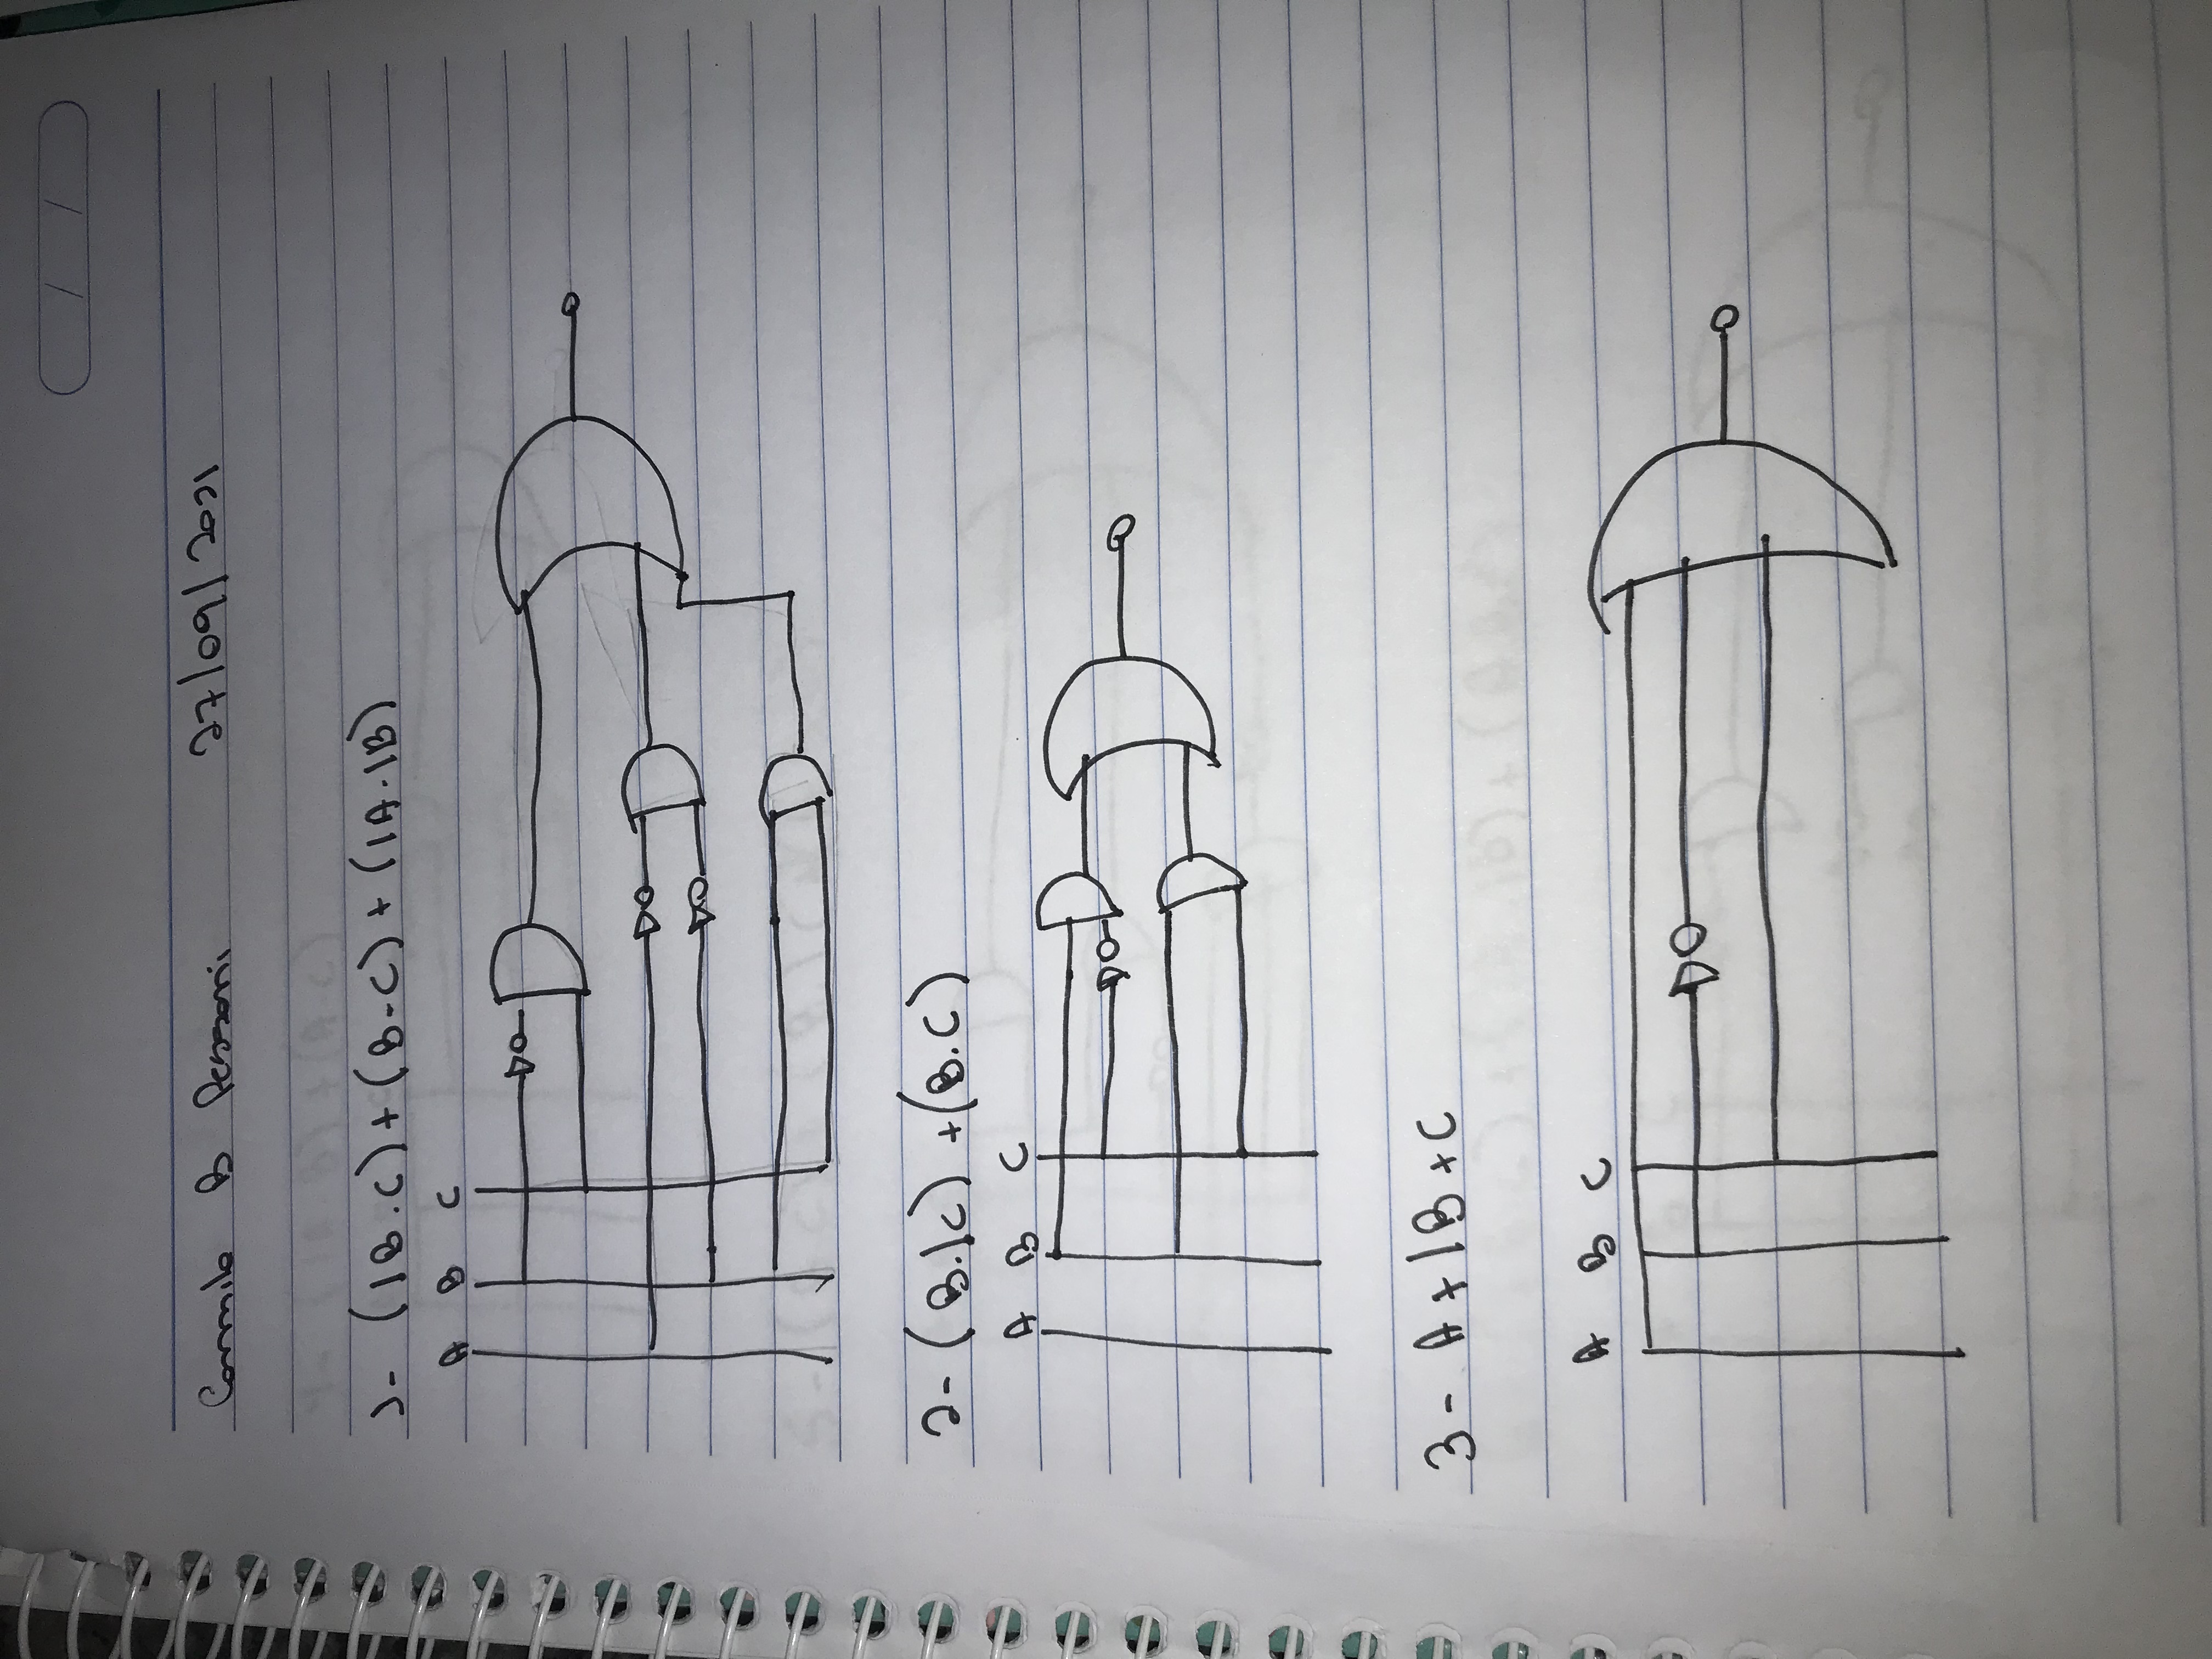 Camila B Pessoni 27/09/2021
1- (|B.C)+(B-C)+(|A.|B)
A B C
2- (B.|C)+(B.C)
A B C
3- A+|B+C
A B C